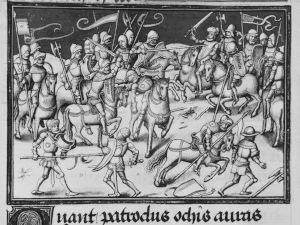 Quant patroclus ochis auras